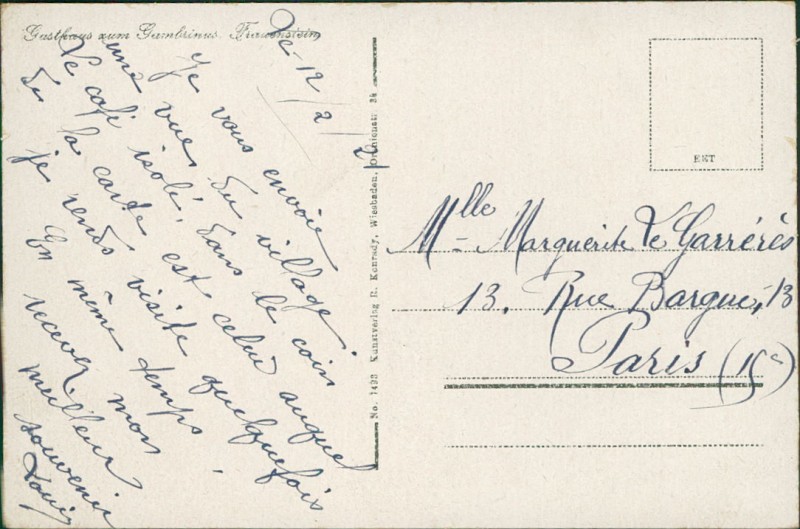 Gasthaus zum Gambrinus. Frauenstein
Le 12/2/2
Je vous envoie
une vue du village.
Le café isolé, dans le coin
de la carte est celui auquel
je rends visite quelquefois
En même temps,
recevez mon
meilleur
souvenir
Louis
No. 1498 Kunstverlag R. Konrady, Wiesbaden, 34
EKT
Mlle Marguerite de Garrérés
13, Rue Bargue, 13
Paris (15e)